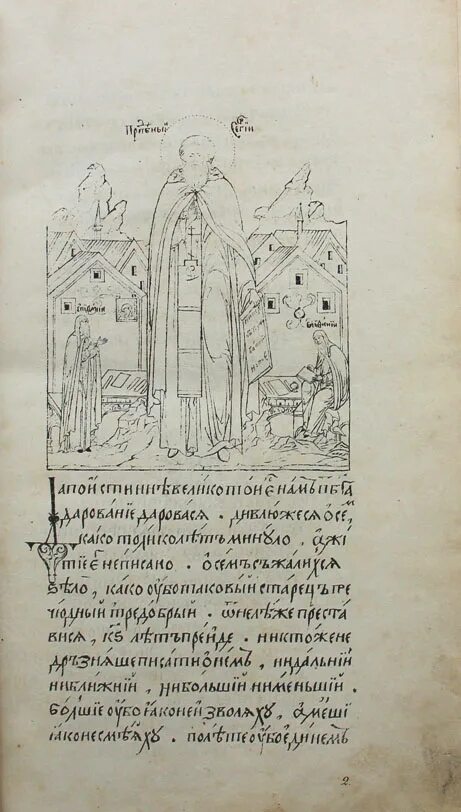 Прпⷣбный Сергїи
Епифанїи
Епифанїи
Да поистиннѣ велико то и є҆ нам ѿ бг҃а
дарованїе даровася · дивлюжеся ѡ҆ се,
како толико лѣтъ минꙋло, а҆ жи
тїе є҆ не писано · ѡ҆ сем съжалихся
ѕѣло̀, како оу҆бо таковый старец пре
чюдный и предобрый · ѿнелѣже преста
вися, к҃ѕ лѣтъ преиде · никтоже не
дръзняше писати ѡ҆ нем, ни дальнїй
ни ближнїй, ни большїй ни меньшїй ·
большїе оу҆бо яко не изволяхꙋ, а҆ меншї
яко не смѣяхꙋ · по лѣте оу҆бо единемъ
2